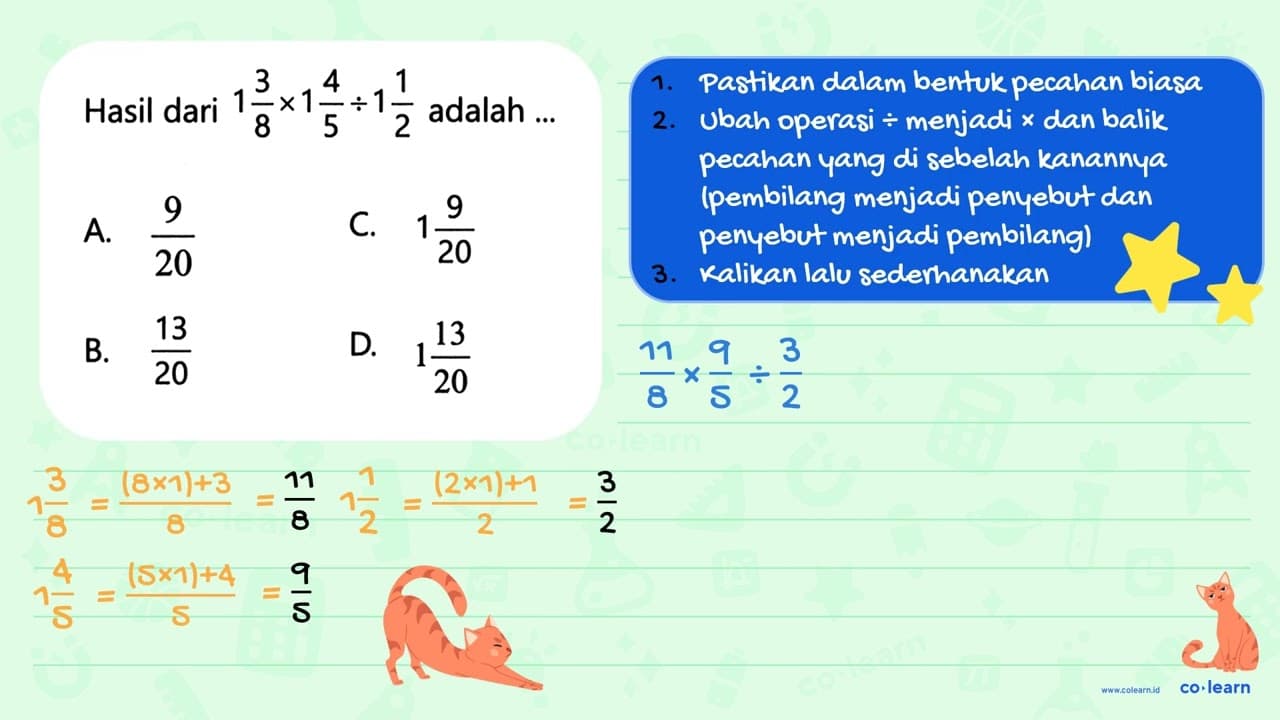 Hasil dari 1 3/8 × 1 4/5 ÷ 1 1/2 adalah ...
A. 9/20
C. 1 9/20
B. 13/20
D. 1 13/20
1. Pastikan dalam bentuk pecahan biasa
2. Ubah operasi ÷ menjadi × dan balik
pecahan yang di sebelah kanannya
(pembilang menjadi penyebut dan
penyebut menjadi pembilang)
3. Kalikan lalu sederhanakan
11/8 × 9/5 ÷ 3/2
1 3/8 = (8×1)+3/8 = 11/8
1 1/2 = (2×1)+1/2 = 3/2
1 4/5 = (5×1)+4/5 = 9/5
co·learn
co·learn
www.colearn.id
co·learn